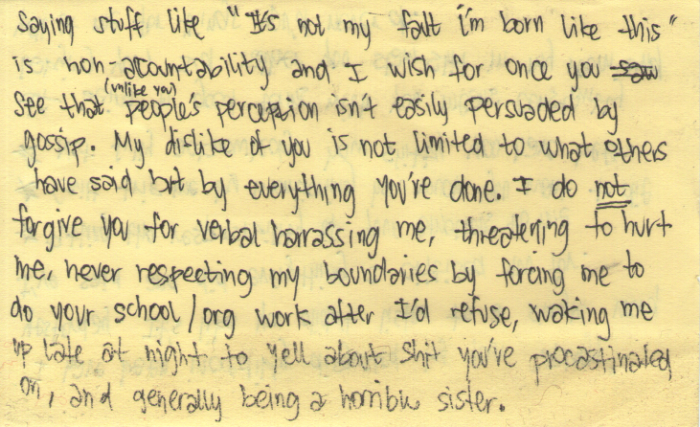 Saying stuff like "It's not my fault i'm born like this"
is non-accountability and I wish for once you saw
see that (unlike you) people's perception isn't easily persuaded by
gossip. My dislike of you is not limited to what others
have said but by everything you've done. I do not
forgive you for verbal harrassing me, threatening to hurt
me, never respecting my boundaries by forcing me to
do your school/org work after I'd refuse, waking me
up late at night to yell about shit you've procastinated
on, and generally being a horrible sister.